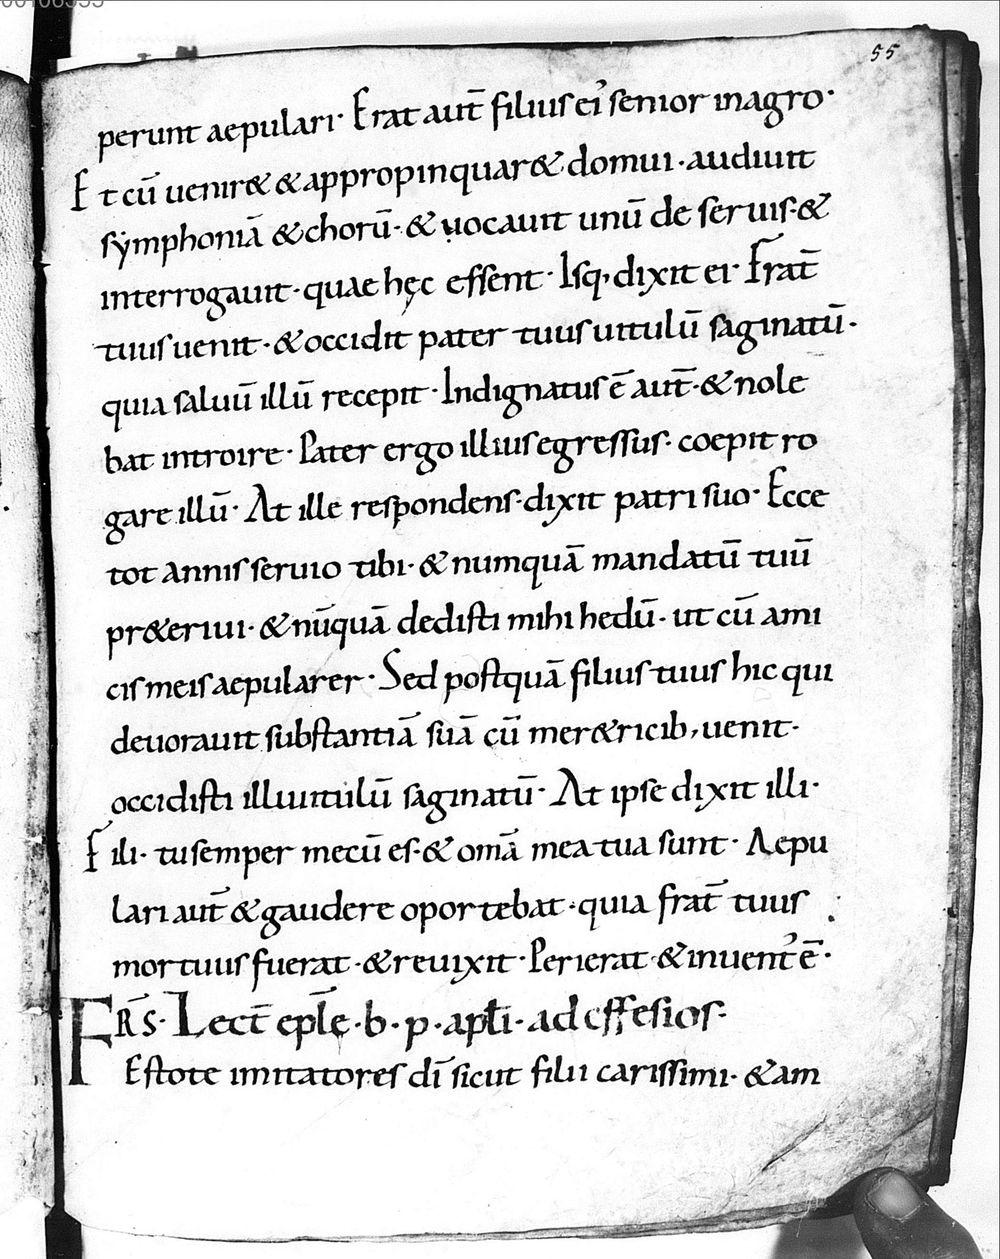 55
perunt aepulari· Erat aut̄ filius ei' senior inagro·
Et cū uenir& &appropinquar& domui· audiuit
sẏmphoniā &chorū·& uocauit unū de seruis·&
interrogauit· quae hęc essent· Isq; dixit ei· Frat̄
tuus uenit·&occidit pater tuus uitulū saginatū·
quia saluū illū recepit· Indignatus ē aut̄·& nole
bat introire· Pater ergo illius egressus· coepit ro
gare illū· At ille respondens·dixit patri suo· Ecce
tot annis seruio tibi·& numquā mandatū tuū
pr&eriui·& nūquā dedisti mihi hedū· ut cū ami
cis meis aepularer· Sed postquā filius tuus hic qui
deuorauit substantiā suā cū mer&ricib; uenit·
occidisti illi uitulū saginatū· At ipse dixit illi·
Fili· tu semper mecū es·& om̄a mea tua sunt· Aepu
lari aut̄ &gaudere oportebat·quia frat̄ tuus
mortuus fuerat·&reuixit· Perierat·&inuent' ē·
FR̄S· Lect̄ epl̄ę·b·p·apl̄i·ad effesios·
Estote imitatores dī sicut filii carissimi· &am